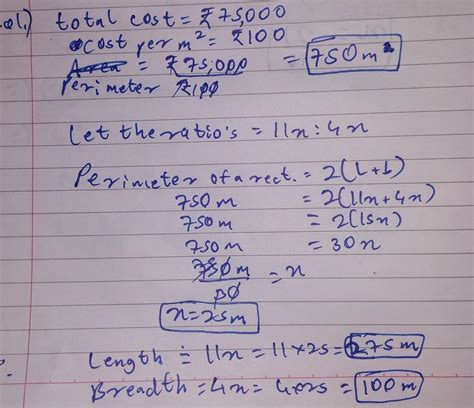 ol.) total cost = ₹75,000
cost per m² = ₹100
Area = ₹75,000 = 750m²
Perimeter ₹100
Let the ratio's = 11x : 4x
Perimeter of a rect. = 2(L+b)
750 m = 2(11x+4x)
750 m = 2(15x)
750 m = 30x
750m = x
30
x=25m
Length = 11x = 11×25 = 275m
Breadth = 4x = 4×25 = 100m